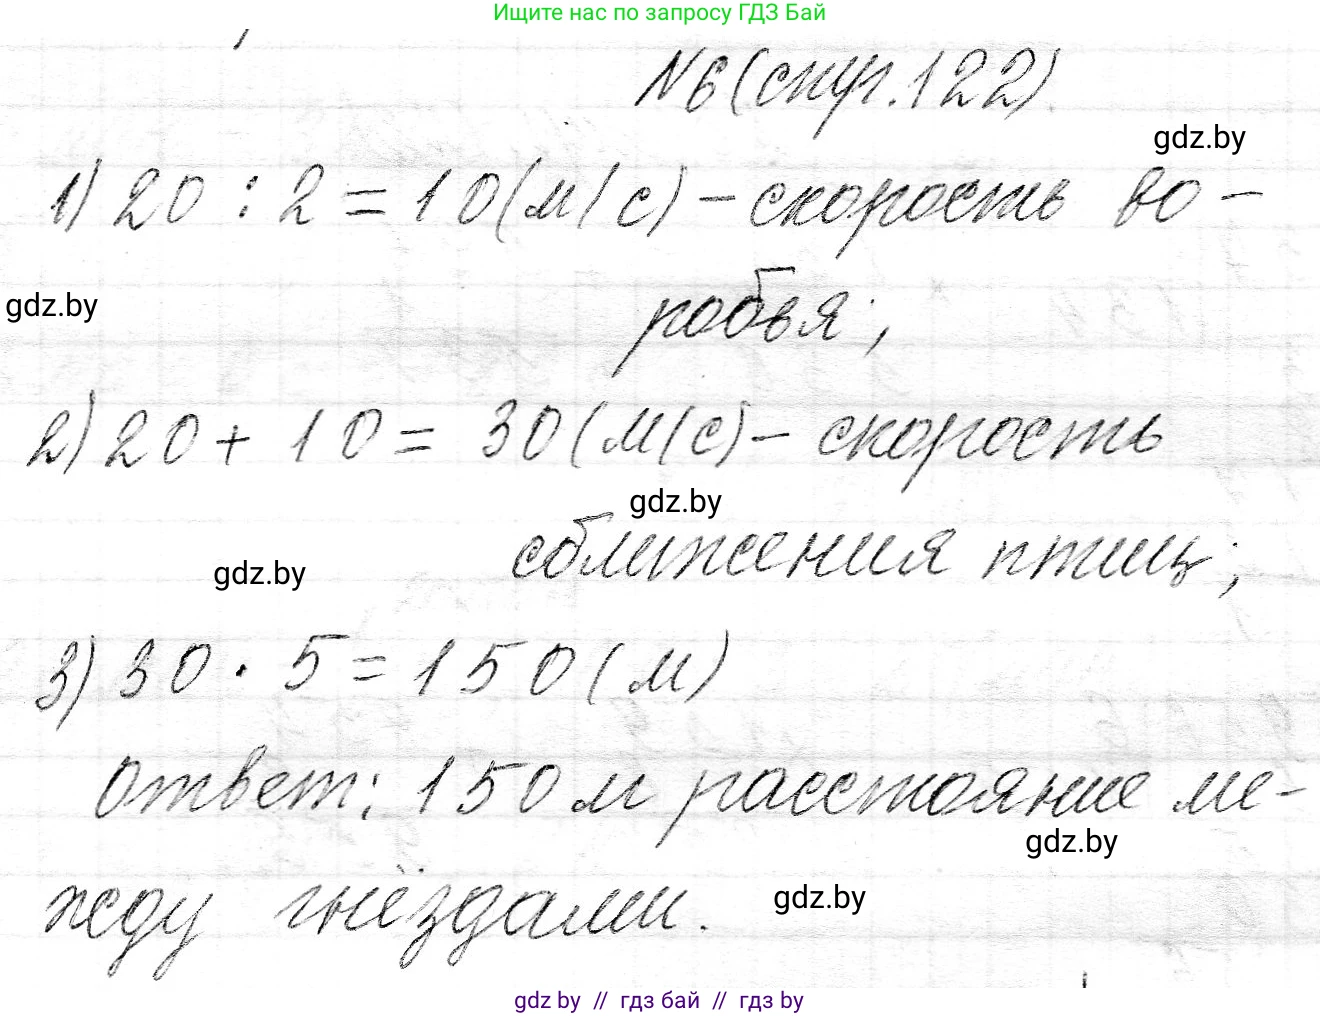 Ищите нас по запросу ГДЗ Бай
№6(стр.122).
gdz.by
1) 20 : 2 = 10(м/с) - скорость во-
gdz.by
робья;
2) 20 + 10 = 30(м/с) - скорость
gdz.by
сближения птиц;
gdz.by
3) 30 · 5 = 150(м)
Ответ: 150 м расстояние ме-
gdz.by
жду гнёздами.
gdz.by
gdz by // гдз бай // гдз by